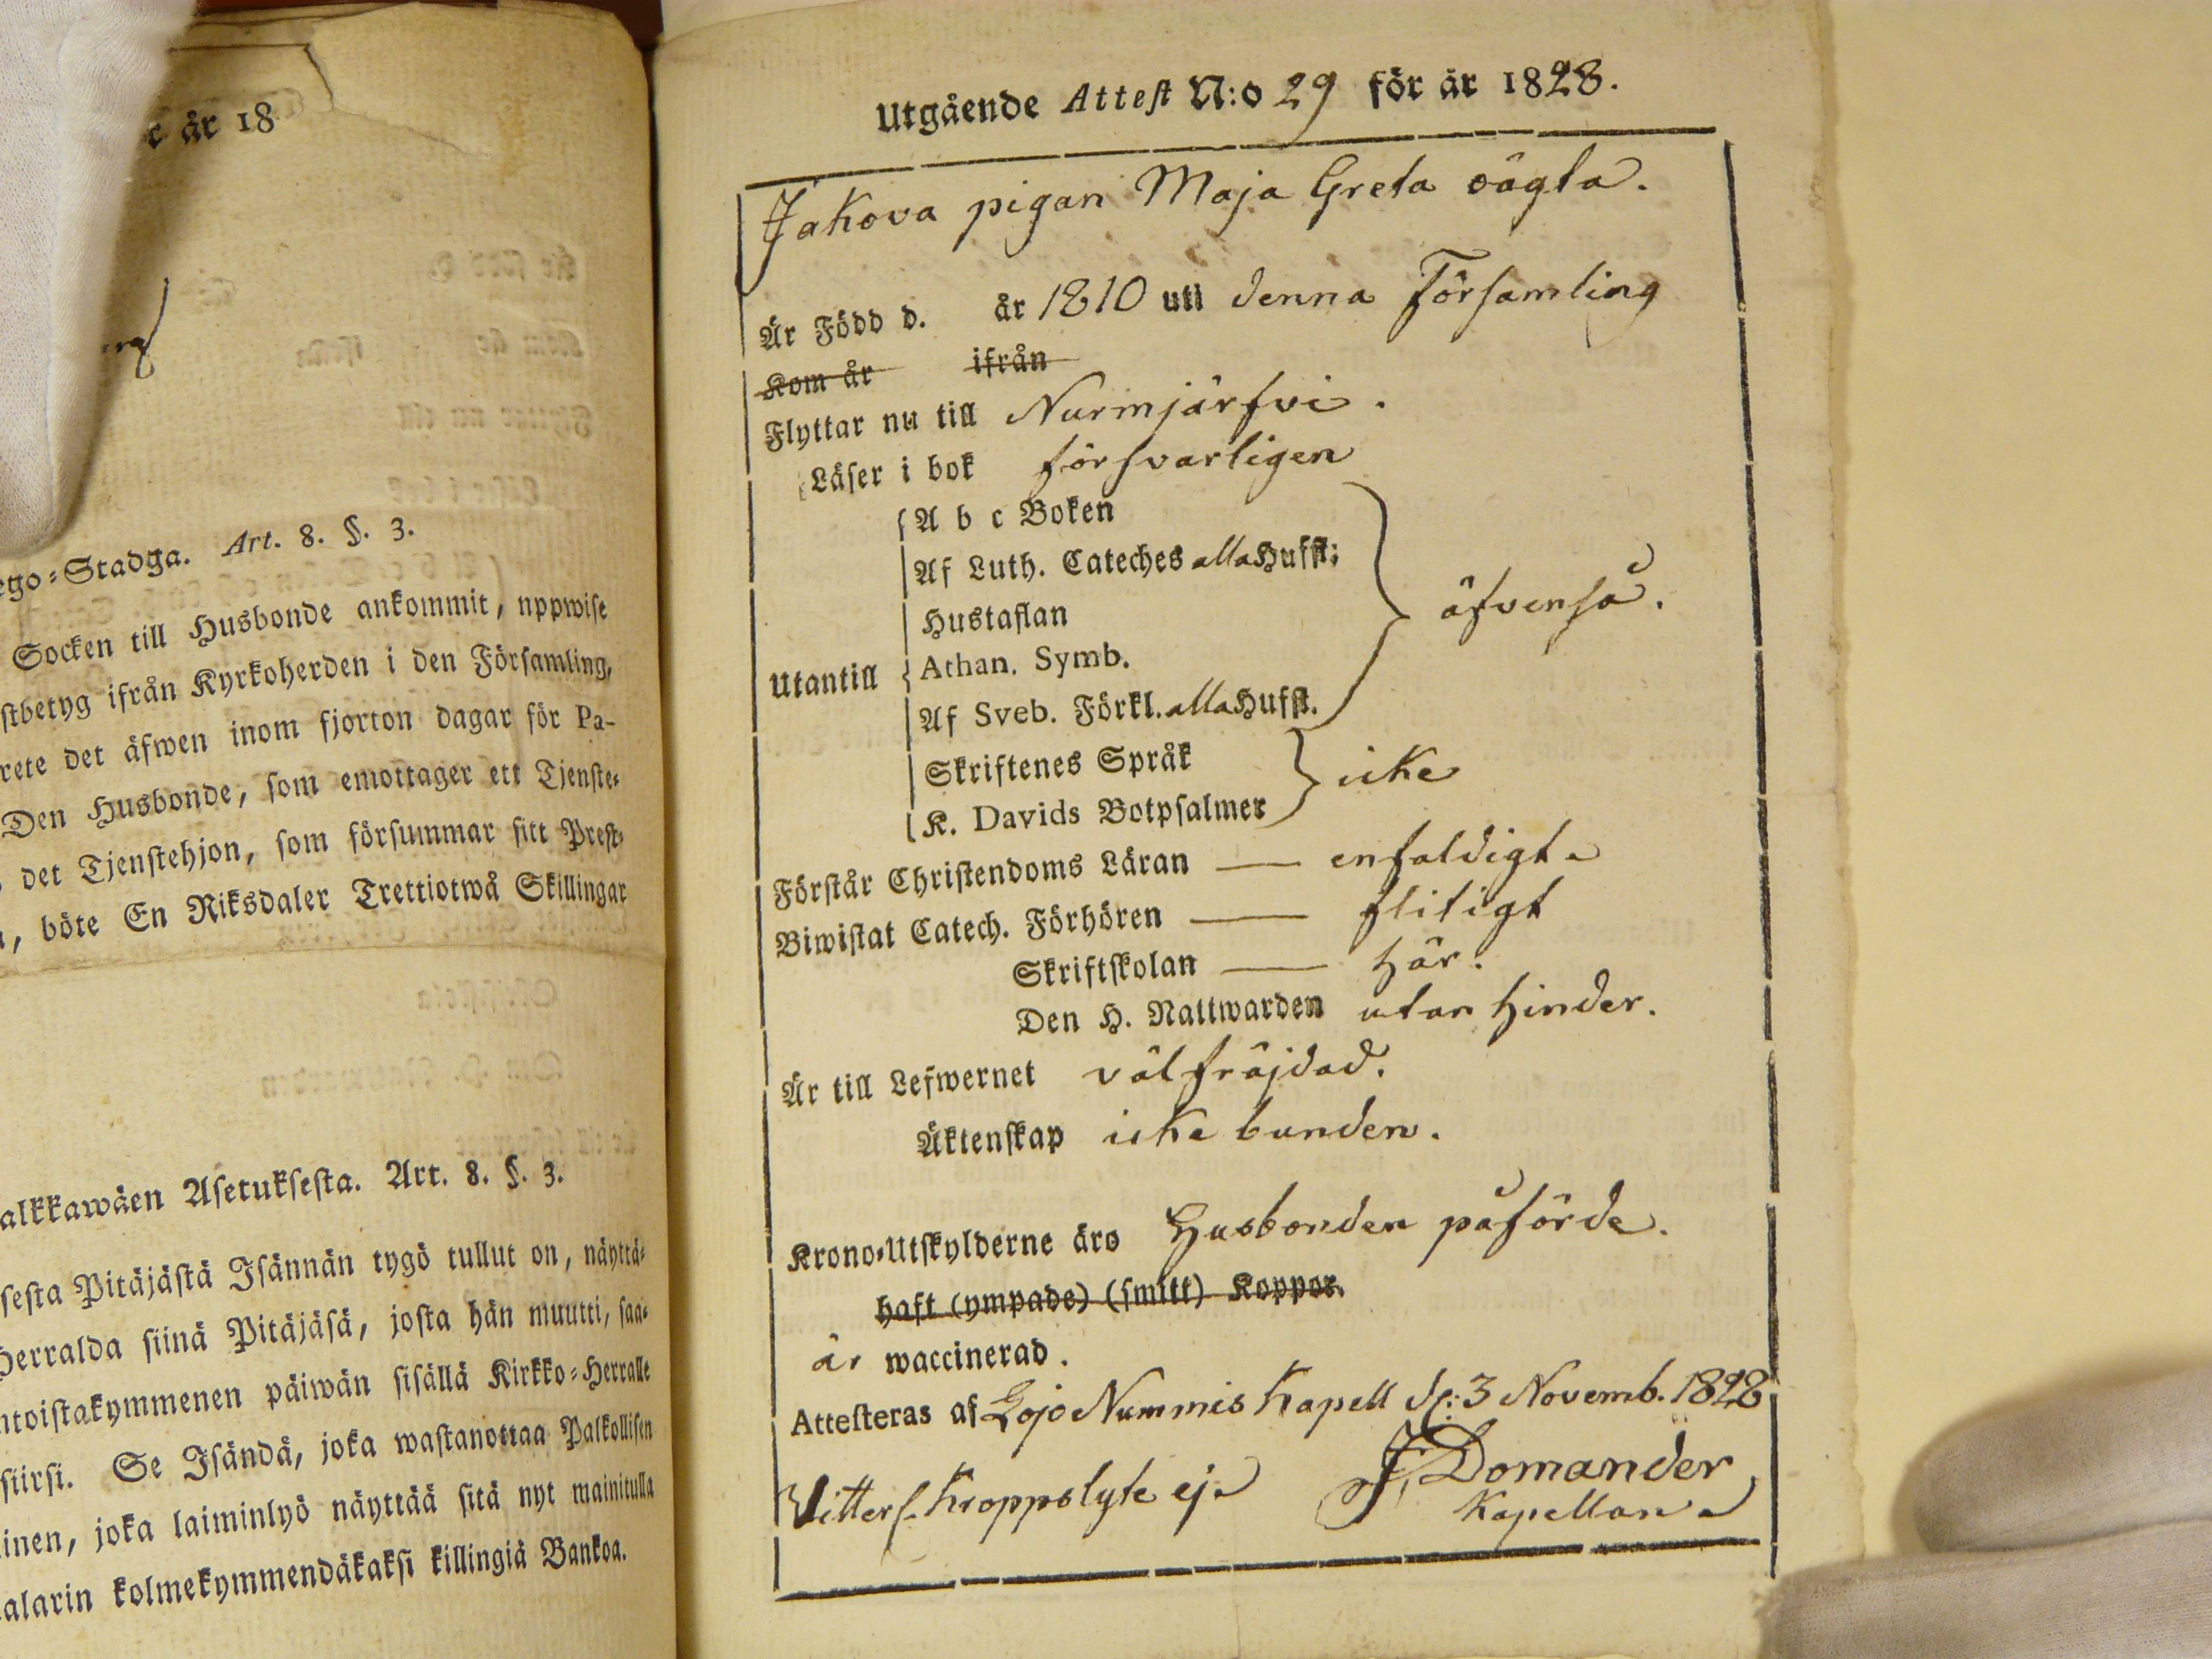 r år 18
erg
ego-Stadga. Art. 8. §. 3.
Socken till Husbonde ankommit, nppwise
stbetyg ifrån Kyrkoherden i den Församling,
rete det äfwen inom fjorton dagar för Pa-
Den Husbonde, som emottager ett Tjenste-
det Tjenstehjon, som försummar sitt Prest-
, böte En Riksdaler Trettiotwå Skillingar
alkkawäen Asetuksesta. Art. 8. §. 3.
sesta Pitäjästä Isännän tygö tullut on, näyttä-
Herralda siinä Pitäjäsä, josta hän muutti, saa-
ntoistakymmenen päiwän sisällä Kirkko-Herralle
siirsi. Se Isändä, joka wastanottaa Palkollisen
inen, joka laiminlyö näyttää sitä nyt mainitulla
alarin kolmekymmendäkaksi killingiä Bankoa.
Utgående Attest N:o 29 för år 1828.
Jakova pigan Maja Greta oägta.
Är Född d. år 1810 uti denna Församling
Kom år ifrån
Flyttar nu till Nurmjärfvi.
Läser i bok försvarligen
Utantill
A b c Boken
Af Luth. Cateches alla Hufst:
Hustaflan
Athan. Symb.
Af Sveb. Förkl. alla Hufst.
äfvenså.
Skriftenes Språk
K. Davids Botpsalmer
icke
Förstår Christendoms Läran — enfaldigt
Biwistat Catech. Förhören — flitigt
Skriftskolan — här.
Den H. Nattwarden utan hinder.
Är till Lefwernet välfräjdad.
Äktenskap icke bunden.
Krono-Utskylderne äro Husbonden påförde.
haft (ympade) (smitt) Koppor.
är waccinerad.
Attesteras af Lojo Nummis Kapell d: 3 Novemb. 1828
Kroppslyte ej
J. Domander
Kapellan